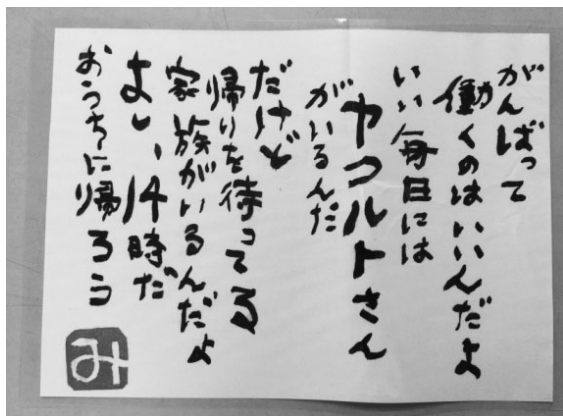 がんばって
働くのはいいんだよ
いい毎日には
ヤクルトさん
がいるんだ
だけど
帰りを待ってる
家族がいるんだよ
よし、14時だ
おうちに帰ろう
み